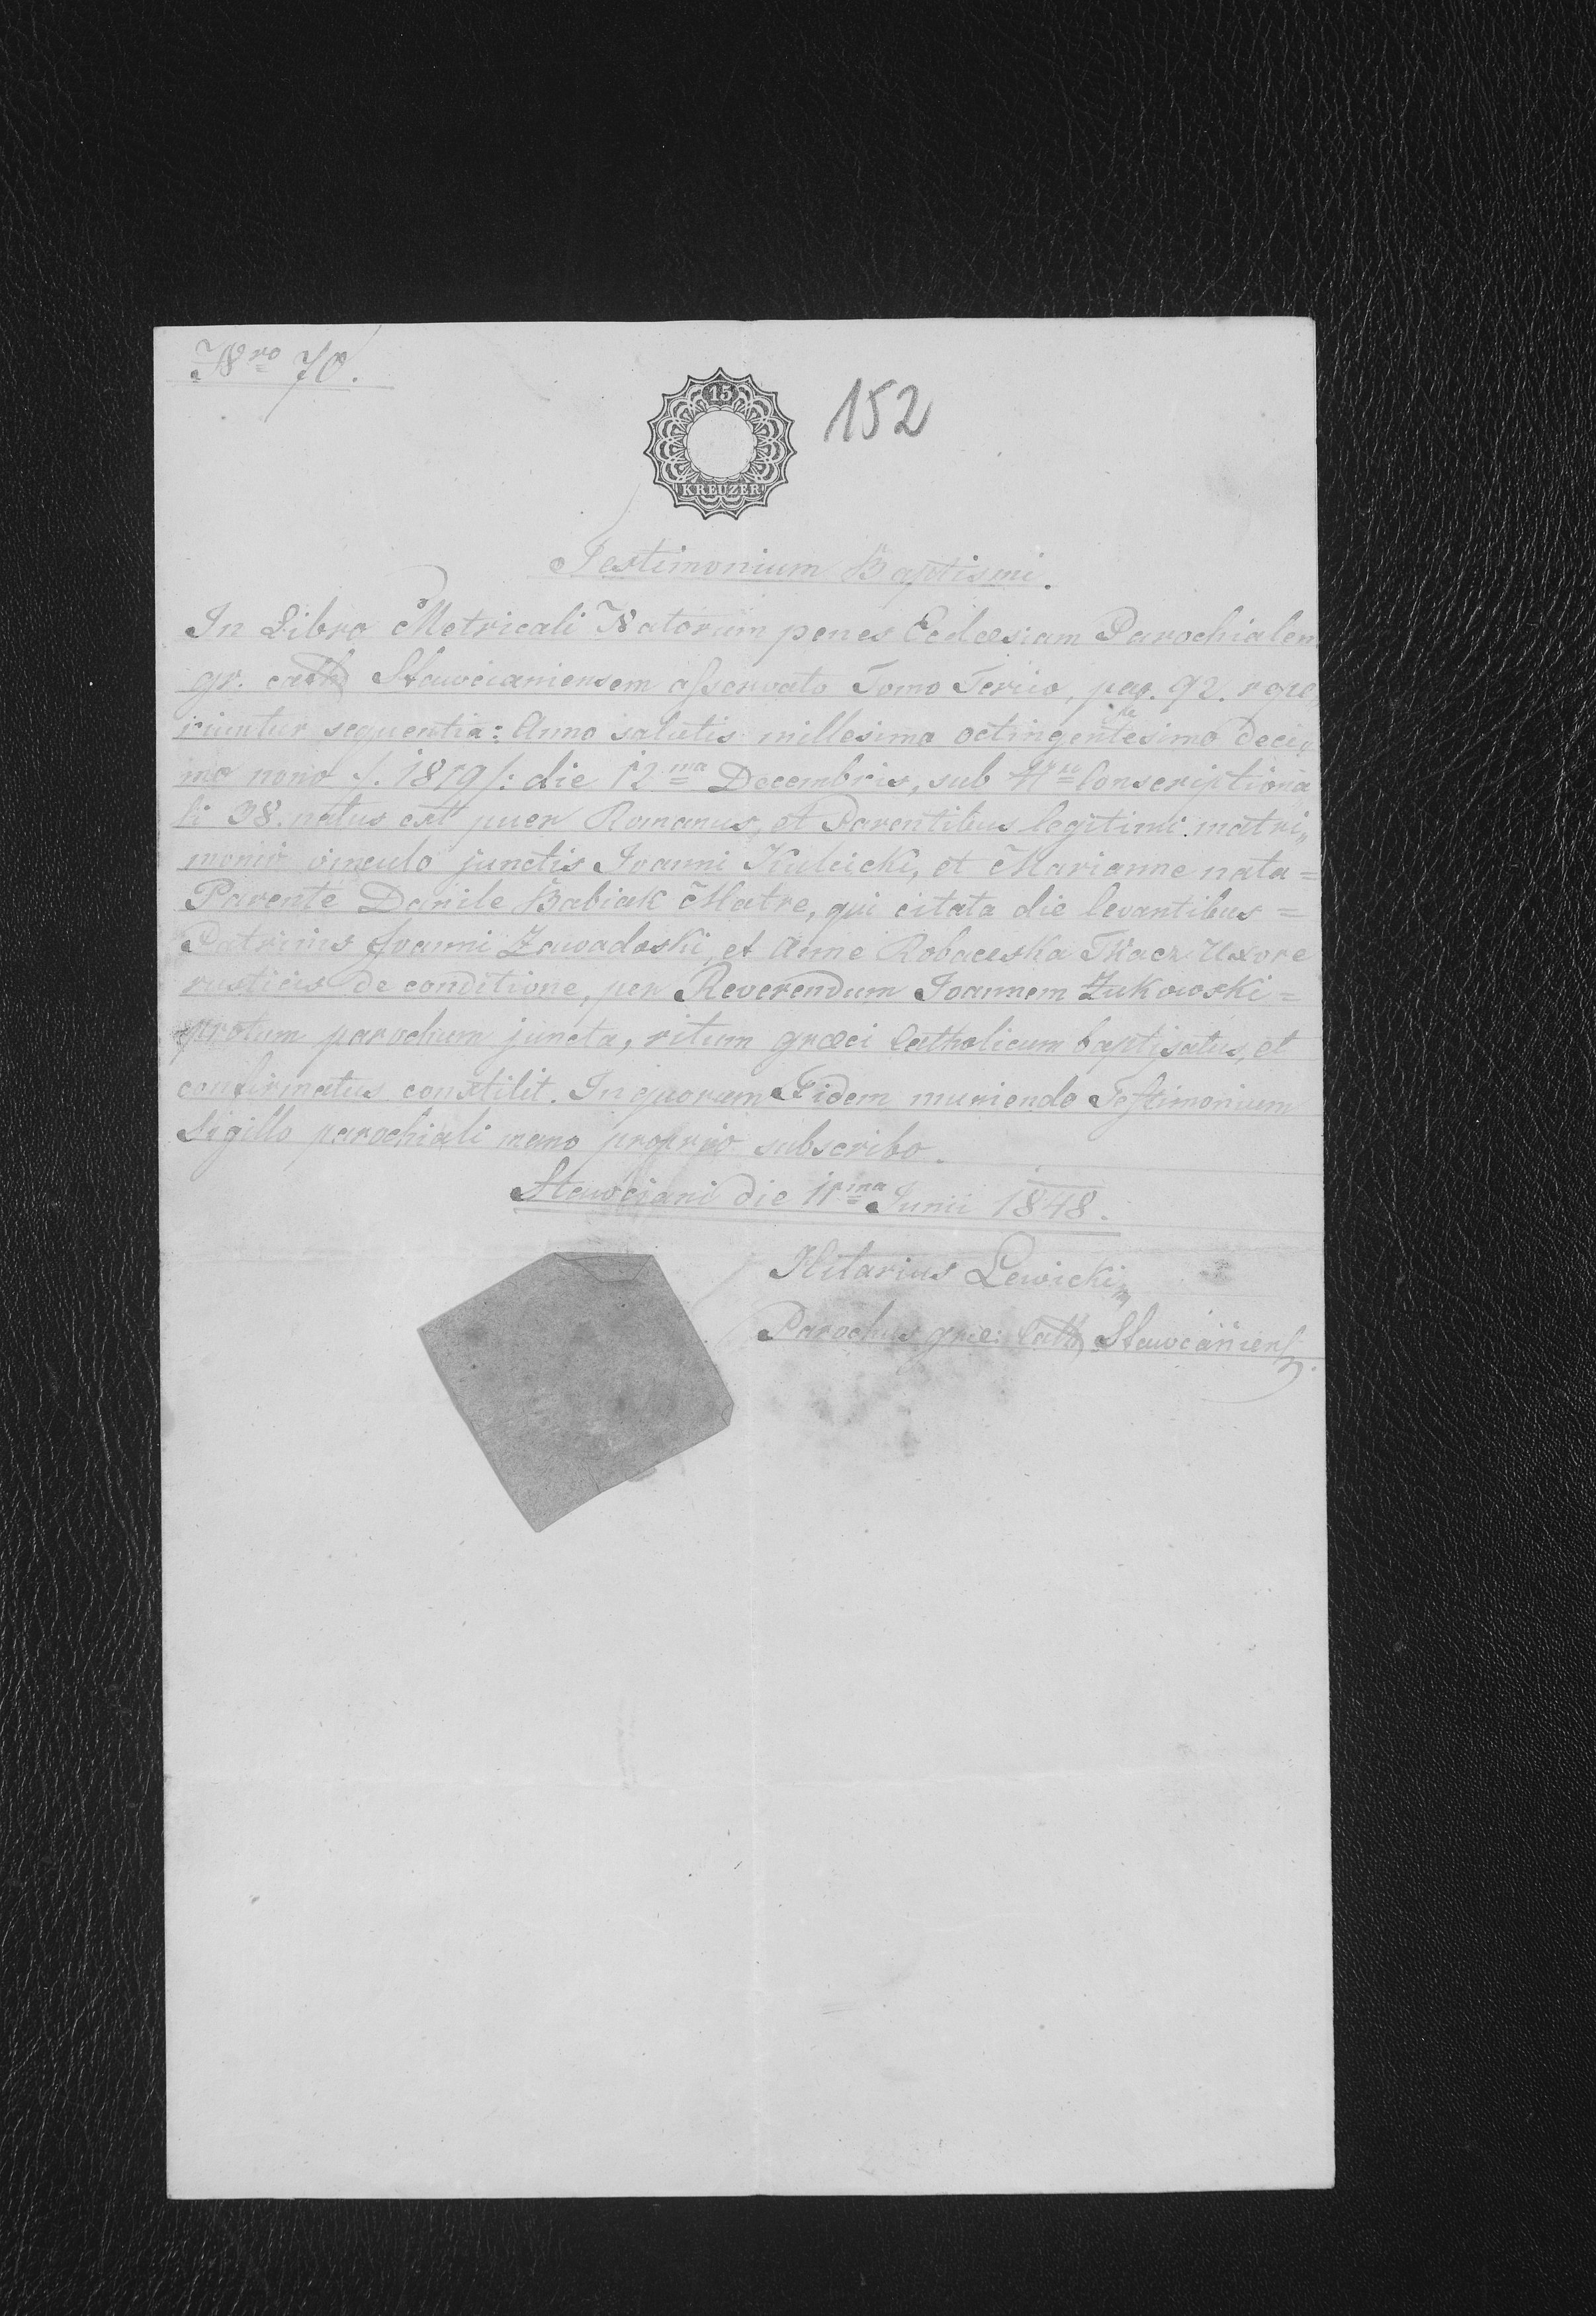 Nro 70.
15
KREUZER
152
Testimonium Baptismi.
In Libro Metricali Natorum penes Ecclesiam Parochialem
gr. cath Stawcianiensem asservato Tomo Tertio, pag. 92. repe„
riuntur sequentia: Anno salutis millesimo octingentesimo deci„
mo nono /: 1819 /: die 12ma Decembris, sub Nro Conscriptiona„
li 38. natus est puer Romanus, et Parentibus legitimi matri„
monii vinculo junctis Ioanni Kulcicki, et Marianne nata =
Parente Danile Babiak Matre, qui citata die levantibus =
Patrinis Ioanni Zawadoski, et Anne Robaceska Tkacz Uxore
rusticis de conditione, per Reverendum Joannem Żukowski =
parochum juncta, ritum græci Catholicum baptisatus, et
confirmatus constitit. In quorum Fidem muniendo Testimonium
Sigillo parochiali mano proprio subscribo.
Stawciani die 11ma Junii 1848.
Hilarius Lewicki
Parochus græ: Cath Stawcaniens.